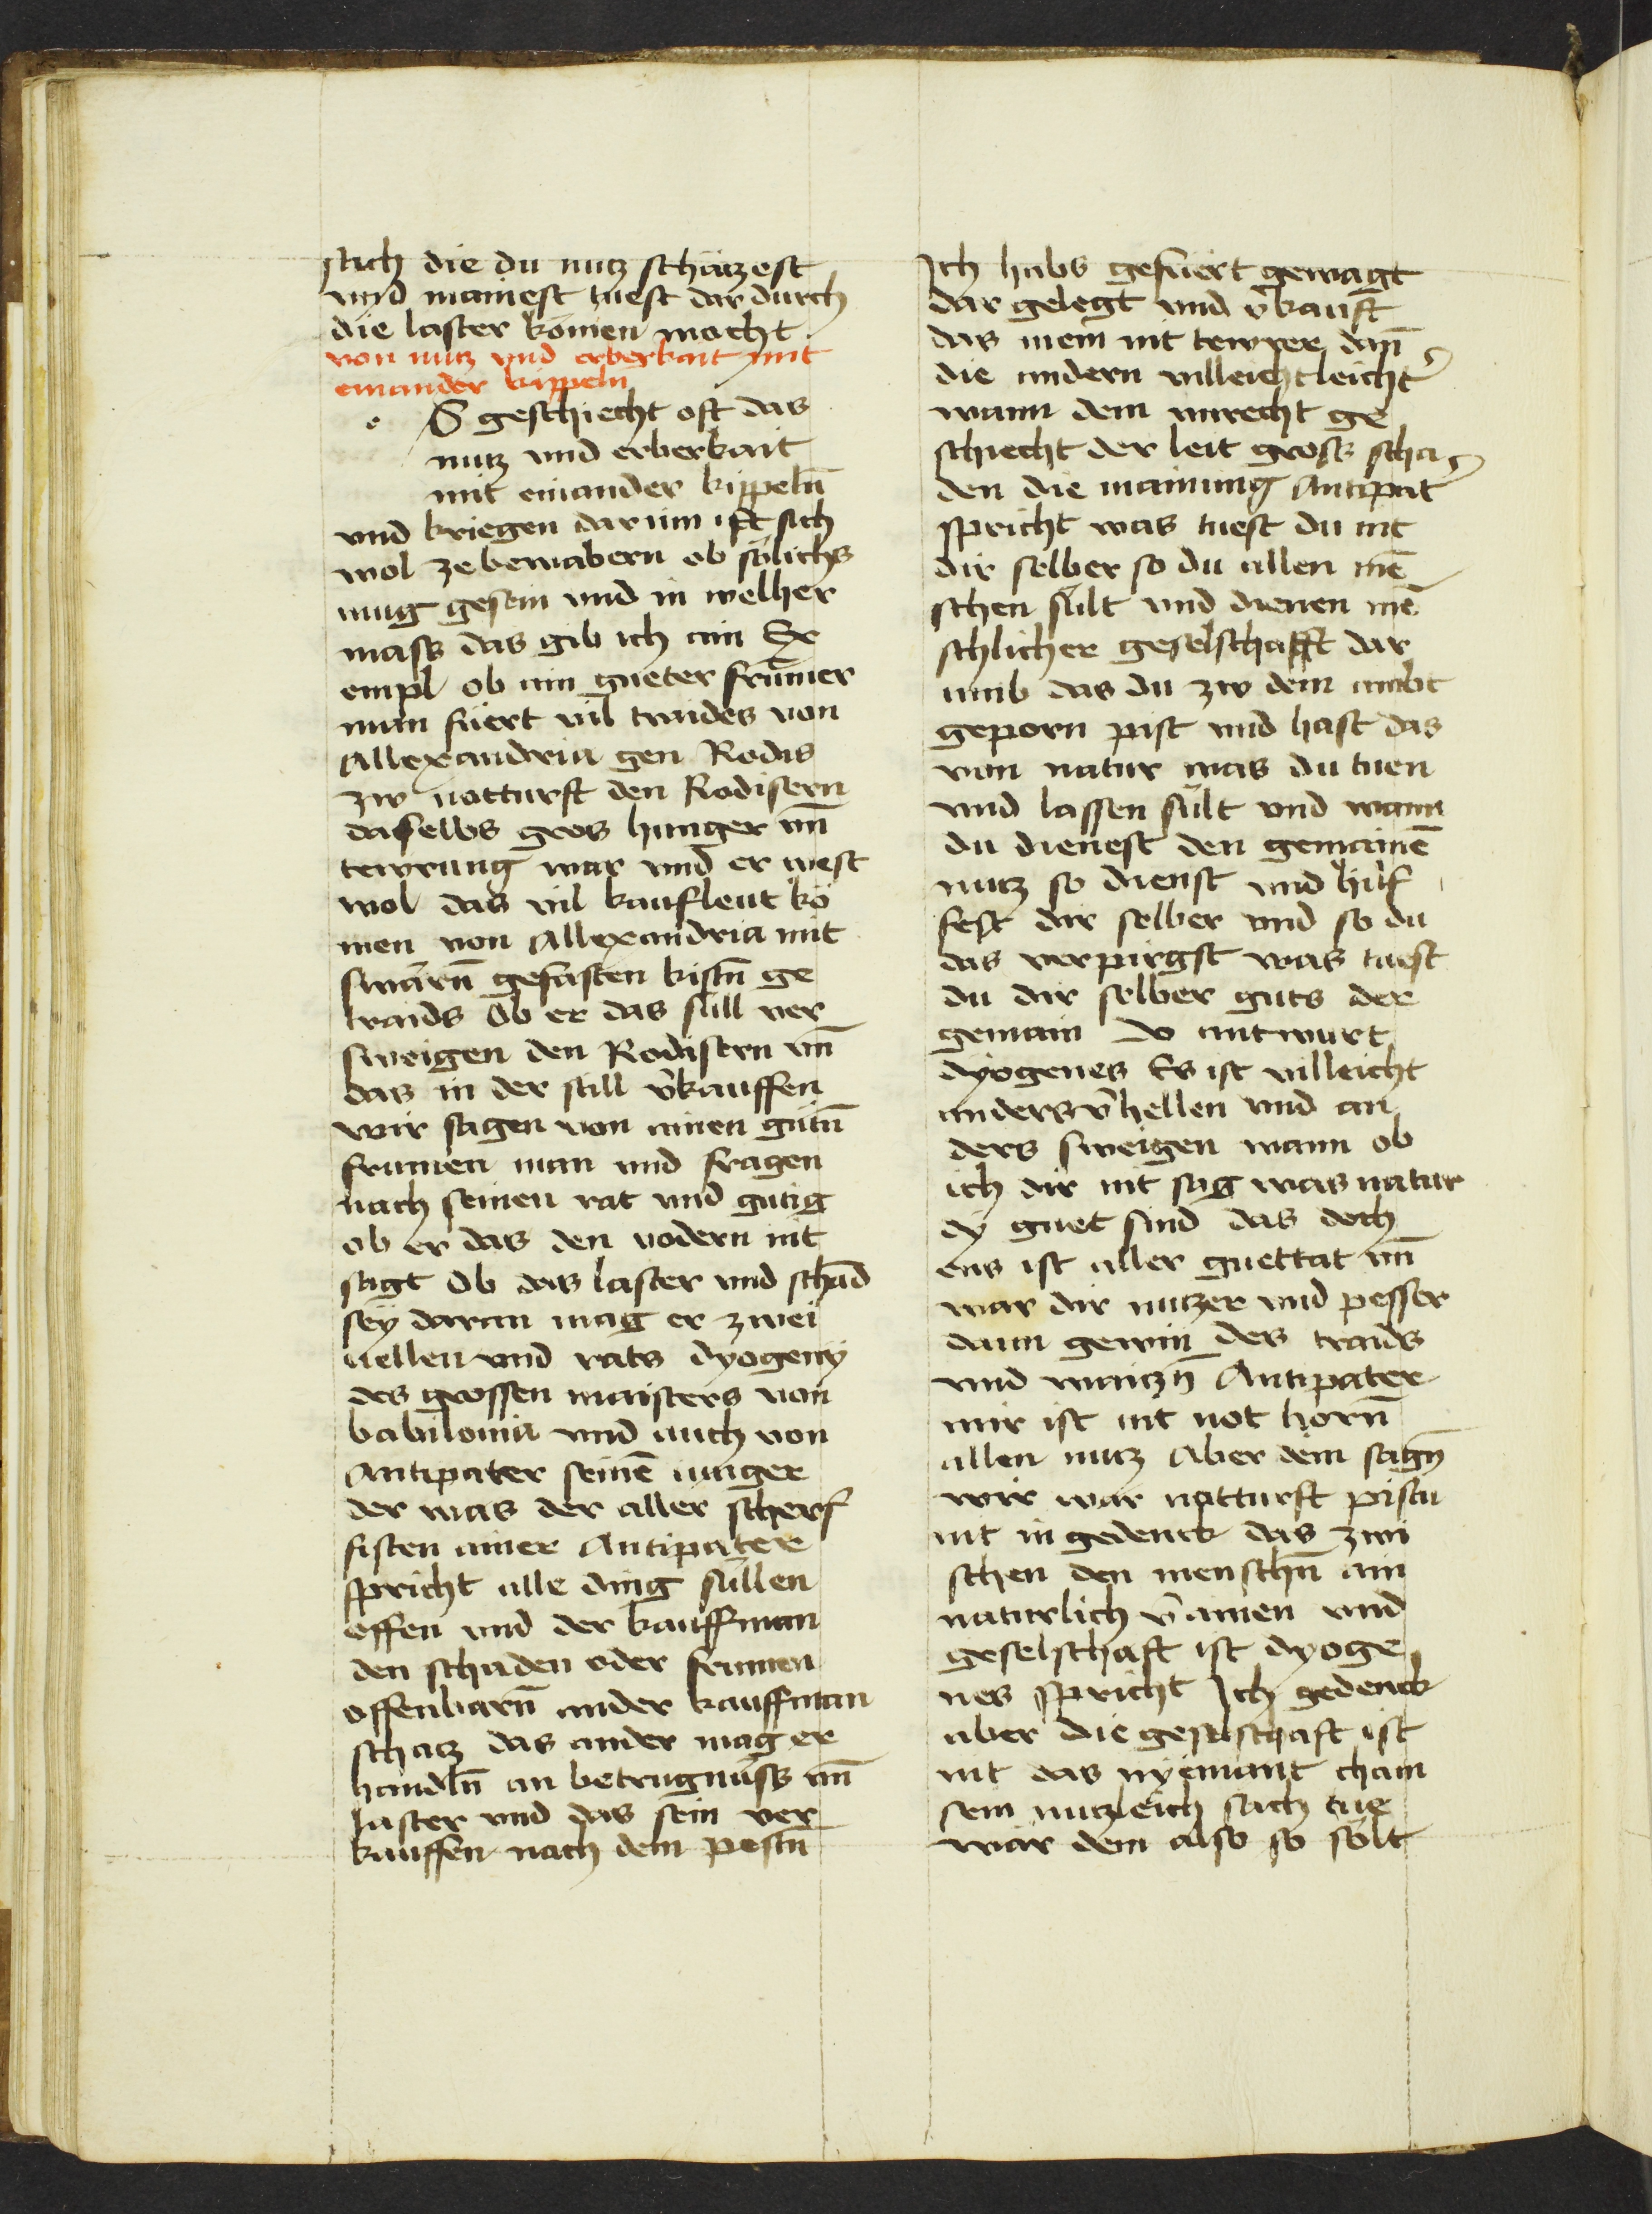 sach die du nutz schätzest
vnd mainest tuest dar durch
die laster komen mocht
von nutz vnd erberkait mit
einander kippeln
e S geschiecht oft das
nutz vnd erberkait
mit einander kippeln̄
vnd kriegen dar um ist sich
wol ze bewabern ob sölichs
mug gesein vnd in welher
mass das gib ich ain Ex
empl ob ain gueter frūmer
man füert vil traides von
Allexandria gen Rodis
zw notturft den Rodisern
daselbs gros hunger vn̄
tewrung war vnd er west
wol das vil kaufleut kö
men von Allexandria mit
swärn̄ gefasten kistn̄ ge
traids Ob er das sull ver
sweigen den Rodisern vn̄
das in der still v̄kauffen
wir sagen von ainen gütn̄
frumen man vnd fragen
nach seinen rat vnd gütig
ob er das den vodern nit
sagt Ob das laster vnd schad
sey daran mag er zwei
uellen vnd rats dyogeny
des grossen maisters von
babilonia vnd auch von
Antipater seinē iunger
der was der aller scherf
fisten ainer Antipater
spricht alle ding sullen
offen vnd der kauffman
den schaden oder frumen
offenbarn̄ ander kauffman
schatz das ander mag er
handln̄ an betrugnuss vn̄
laster vnd das sein ver
kauffen nach dem pestn̄
Ich habs gefüert gewagt
dar gelegt vnd v̄kauft
das mein nit tewrer dan̄
die andern villeicht leicht
wann dem vnrecht ge
schiecht der leit gross scha
den die mainung Antipat
spricht was tuest du nit
dir selber so du allen mē
schen sült vnd dienen mē
schlicher geselschafft dar
umb das du zw dem ambt
geporn pist vnd hast das
von natur was du tuen
vnd lassen sült vnd wann
du dienest den gemainē
nutz so dienst vnd hilf
fest dir selber vnd so du
das verpirgst was tuest
du dir selber guts der
gemain Do antwurt
dyogenes Es ist villeicht
anders v̄hellen vnd an
ders sweigen wann ob
ich dir nit sag was natur
dy guet sind das doch
ens ist aller guettat vn̄
war dir nutzer vnd pesser
dann gewin des traids
vnd waitzn̄ Antipater
mir ist nit not hörn̄
allen nutz Aber dem sagn̄
wir war natturft pistu
nit in gedenck das zwi
schen den menschn̄ ain
naturlich v̄ainen vnd
geselschaft ist dyoge
nes spricht Ich gedenck
aber die geselschaft ist
nit das nyemant cham
sein nutzleich sach tue
wär dem also so sölt